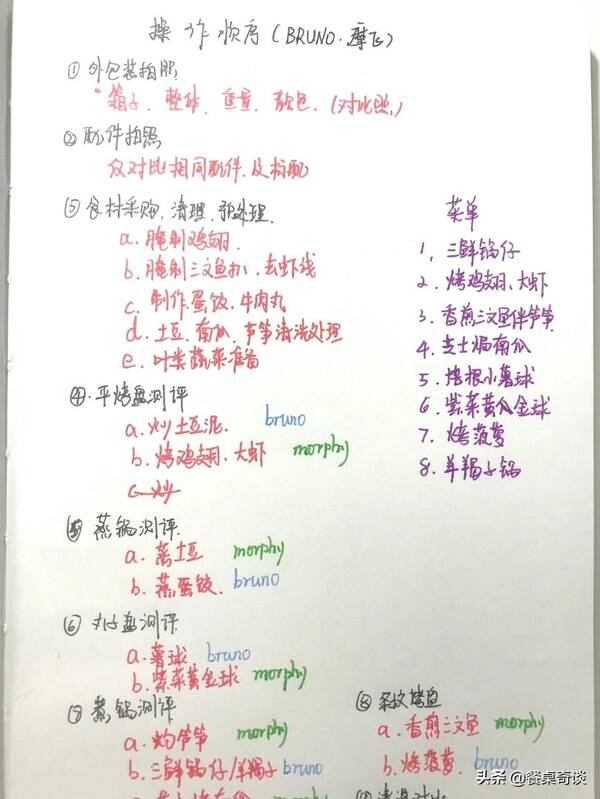 操作顺序(BRUNO·摩飞)
① 外包装拍照
箱子、整体、重量、颜色、(对比照)
② 配件拍照
仅对比相同配件、及标配
③ 食材采购、清理、预处理
a. 腌制鸡翅
b. 腌制三文鱼扒、去虾线
c. 制作蛋饺、牛肉丸
d. 土豆、南瓜、芦笋清洗处理
e. 叶类蔬菜准备
④ 平烤盘测评
a. 炒土豆泥. bruno
b. 烤鸡翅、大虾 morphy
c 炒
⑤ 蒸锅测评.
a. 蒸土豆 morphy
b. 蒸蛋饺. bruno
⑥ 丸子盘测评
a. 薯球. bruno
b. 紫菜黄金球 morphy
⑦ 煮锅测评
a. 灼芦笋 morphy
b. 三鲜锅仔/羊羯子 bruno
⑧ 条纹烤盘
a. 香煎三文鱼 morphy
b. 烤菠萝. bruno
菜单
1、三鲜锅仔
2、烤鸡翅、大虾
3、香煎三文鱼伴芦笋
4、芝士焗南瓜
5、培根小薯球
6、紫菜黄金球
7、烤菠萝
8、羊羯子锅
头条 @餐桌奇谈